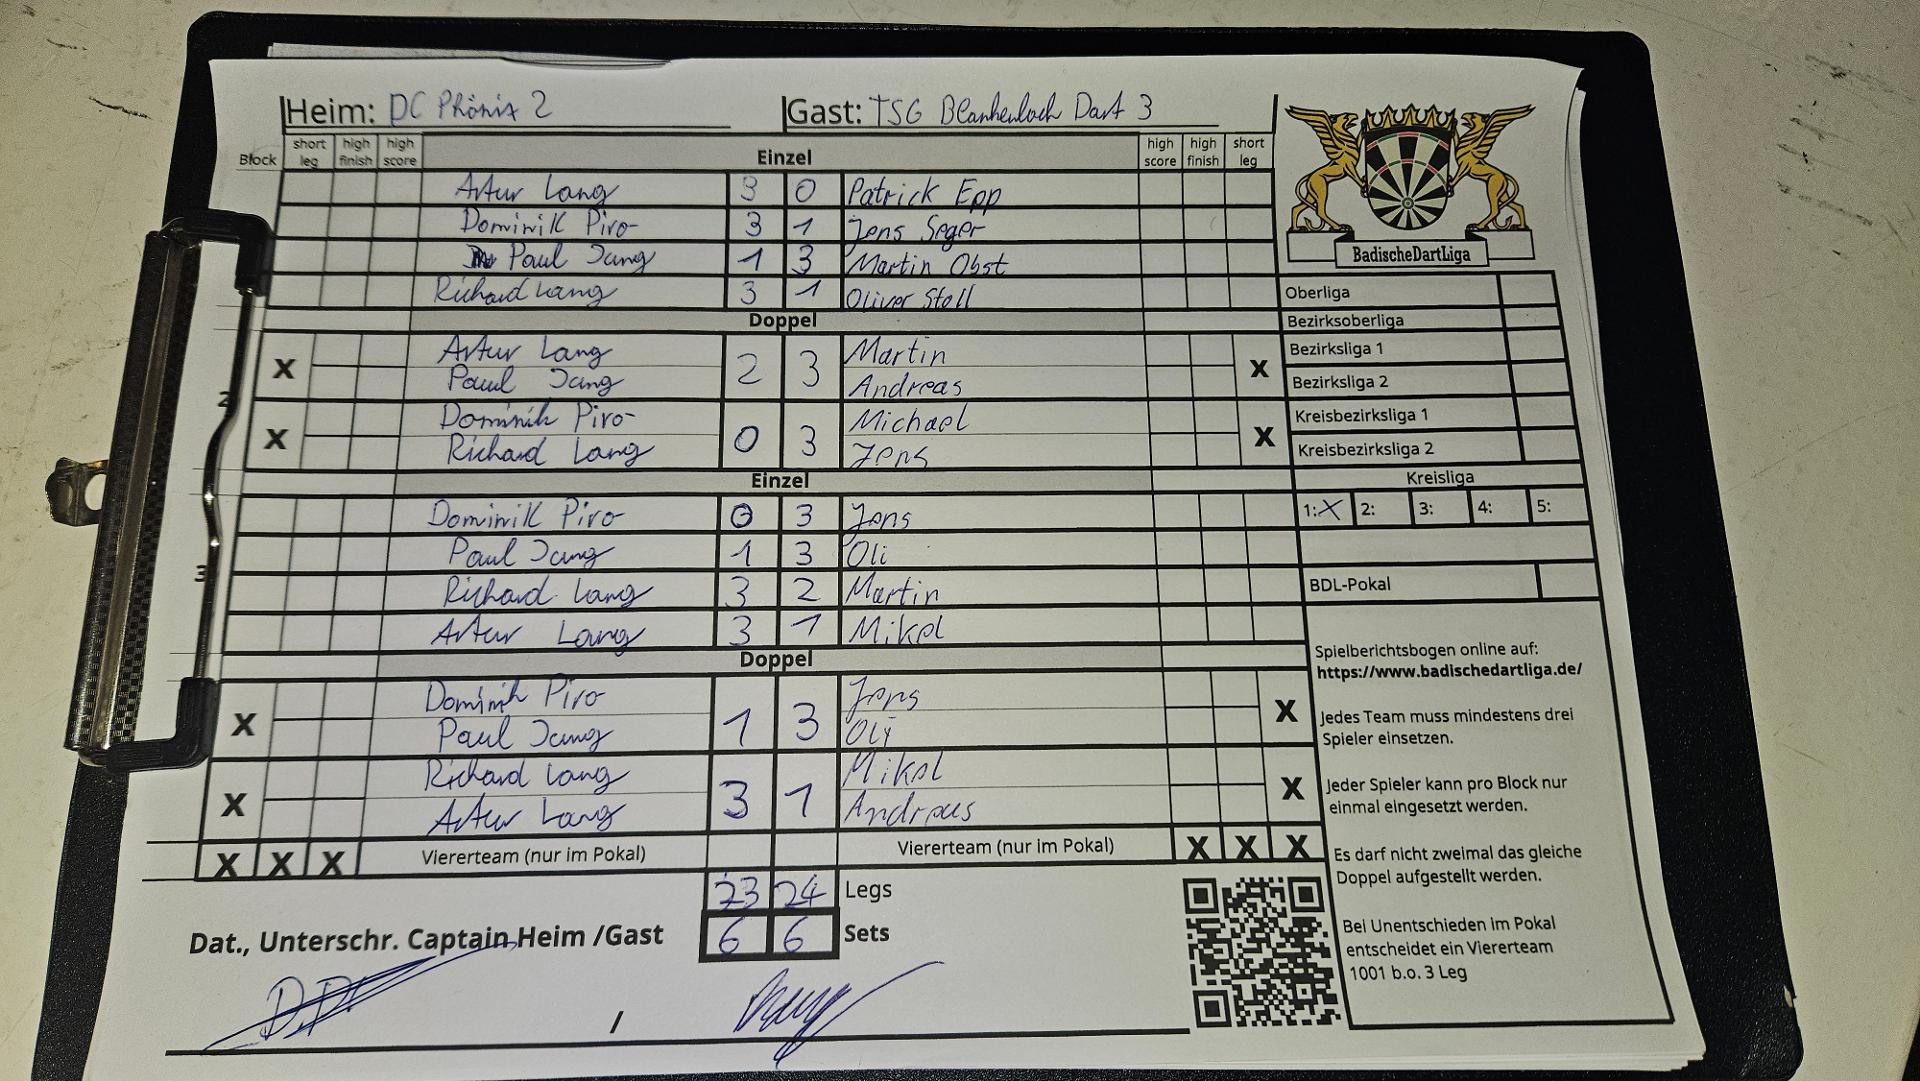 Heim: DC Phönix 2 Gast: TSG Blankenloch Dart 3
Block short leg high finish high score Einzel high score high finish short leg
Artur Lang 3 0 Patrick Epp
Dominik Piro- 3 1 Jens Seger
Paul Jang 1 3 Martin Obst
Richard Lang 3 1 Oliver Stoll
Doppel
X Artur Lang 2 3 Martin X
Paul Jang Andreas
X Dominik Piro- 0 3 Michael X
Richard Lang Jens
Einzel
Dominik Piro- 0 3 Jens
Paul Jang 1 3 Oli
Richard Lang 3 2 Martin
Artur Lang 3 1 Mikel
Doppel
X Dominik Piro- 1 3 Jens X
Paul Jang Oli
X Richard Lang 3 1 Mikel X
Artur Lang Andreas
X X X Viererteam (nur im Pokal) Viererteam (nur im Pokal) X X X
23 24 Legs
6 6 Sets
Dat., Unterschr. Captain Heim /Gast
/
2
3
BadischeDartLiga
Oberliga
Bezirksoberliga
Bezirksliga 1
Bezirksliga 2
Kreisbezirksliga 1
Kreisbezirksliga 2
Kreisliga
1: X 2: 3: 4: 5:
BDL-Pokal
Spielberichtsbogen online auf:
https://www.badischedartliga.de/
Jedes Team muss mindestens drei
Spieler einsetzen.
Jeder Spieler kann pro Block nur
einmal eingesetzt werden.
Es darf nicht zweimal das gleiche
Doppel aufgestellt werden.
Bei Unentschieden im Pokal
entscheidet ein Viererteam
1001 b.o. 3 Leg